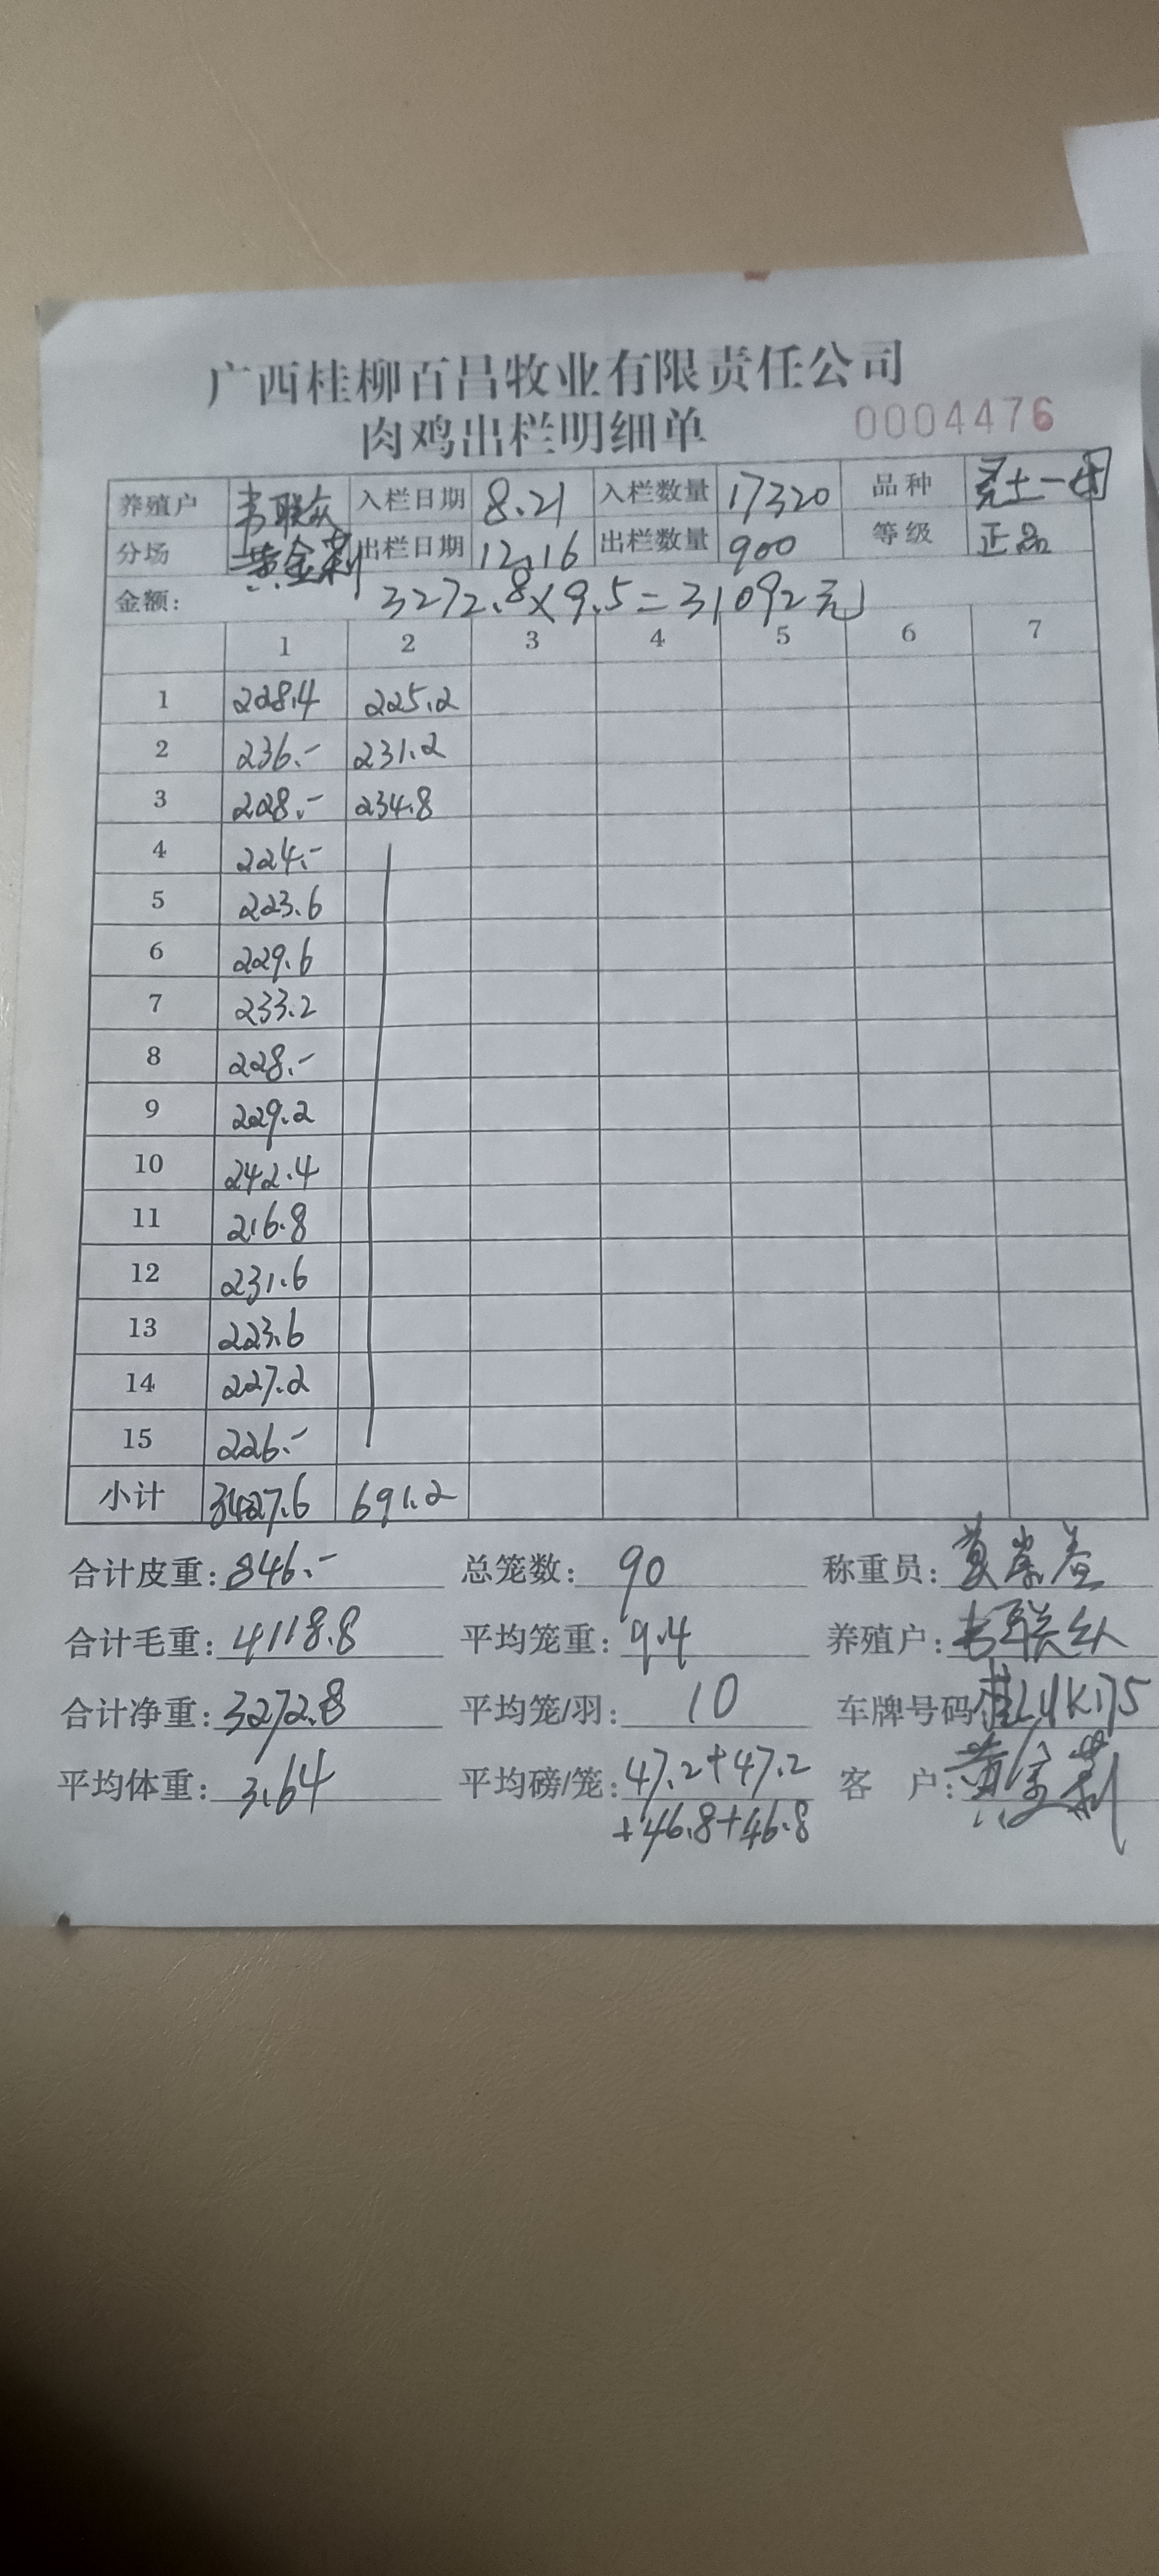 广西桂柳百昌牧业有限责任公司
肉鸡出栏明细单 0004476
养殖户 韦联众 入栏日期 8.21 入栏数量 17320 品种 土一
分场 黄金莉 出栏日期 12.16 出栏数量 900 等级 正品
金额: 3272.8×9.5=31092元
1 2 3 4 5 6 7
1 228.4 225.2
2 236.- 231.2
3 228.- 234.8
4 224.-
5 223.6
6 229.6
7 233.2
8 228.-
9 229.2
10 242.4
11 216.8
12 231.6
13 223.6
14 227.2
15 226.-
小计 3427.6 691.2
合计皮重: 846.- 总笼数: 90 称重员:
合计毛重: 4118.8 平均笼重: 9.4 养殖户: 韦联众
合计净重: 3272.8 平均笼/羽: 10 车牌号码
平均体重: 3.64 平均磅/笼: 47.2+47.2 客 户: 黄金莉
+46.8+46.8